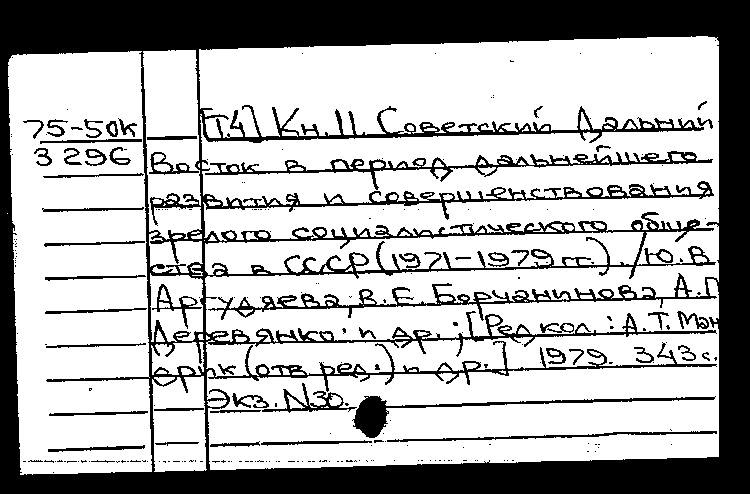 75-50к [Т.4] Кн.II. Советский Дальний
3296 Восток в период дальнейшего
развития и совершенствования
зрелого социалистического обще-
ства в СССР (1971-1979 гг.) . /Ю.В.
Аргудяева, В.Е. Борчанинова, А.П.
Деревянко и др.; [Редкол.: А.Т. Ман
дрик (отв. ред.) и др.] 1979. 343 с.
Экз. N30.